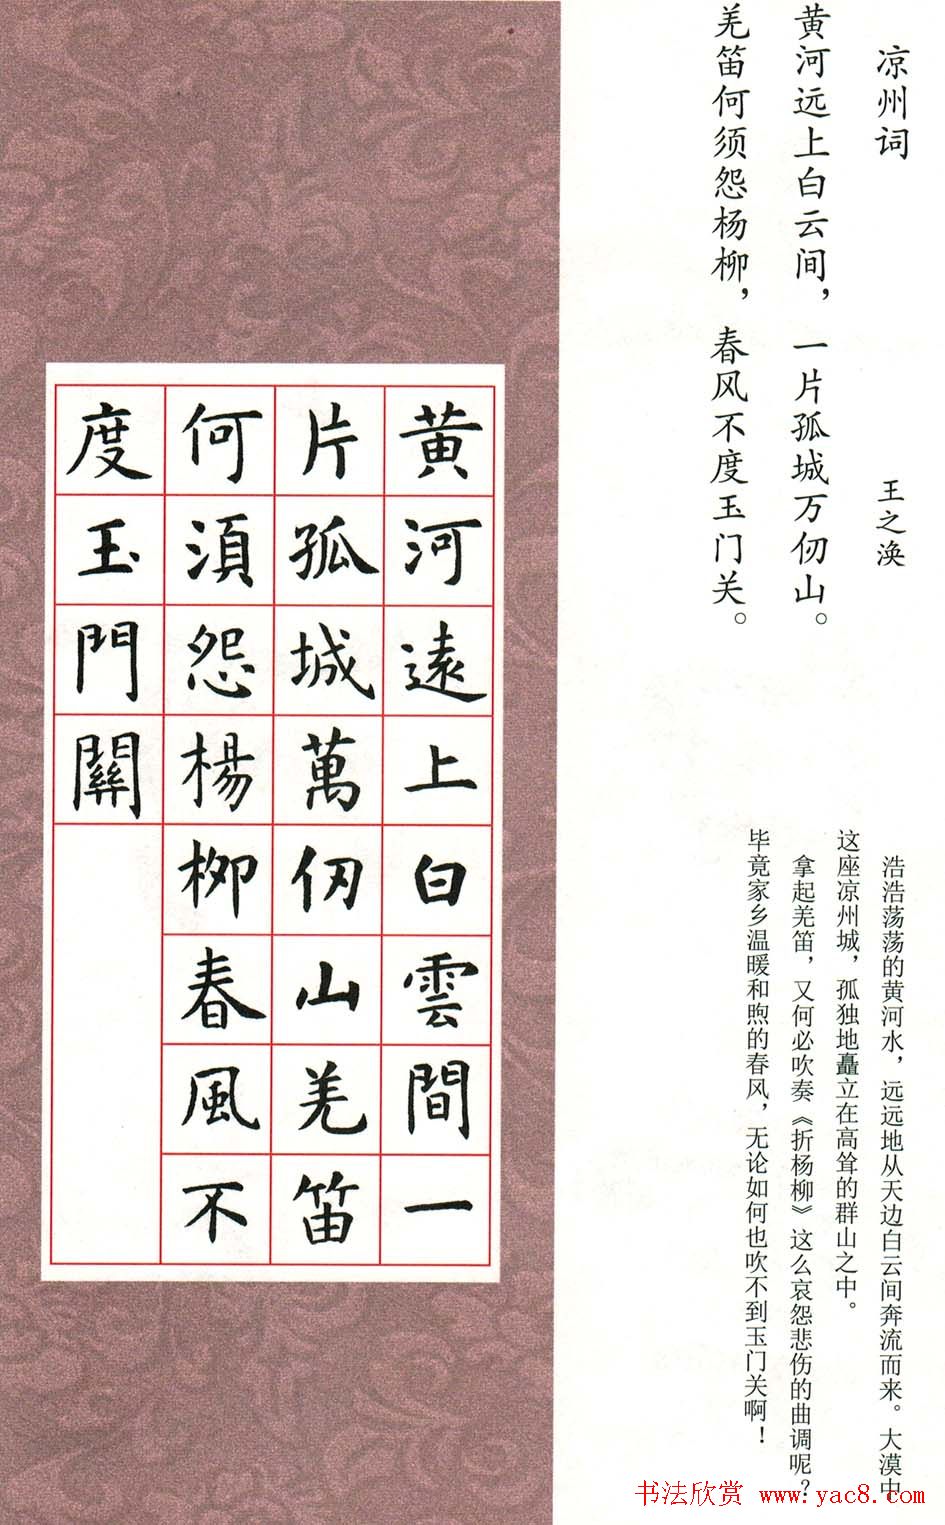 凉州词
王之涣
黄河远上白云间，一片孤城万仞山。
羌笛何须怨杨柳，春风不度玉门关。
浩浩荡荡的黄河水，远远地从天边白云间奔流而来。大漠中
这座凉州城，孤独地矗立在高耸的群山之中。
拿起羌笛，又何必吹奏《折杨柳》这么哀怨悲伤的曲调呢？
毕竟家乡温暖和煦的春风，无论如何也吹不到玉门关啊！
黄河遠上白雲間一
片孤城萬仞山羌笛
何須怨楊柳春風不
度玉門關
书法欣赏 www.yac8.com